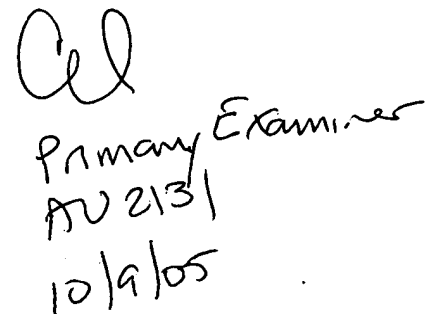 Primary Examiner
AU 2131
10/9/05